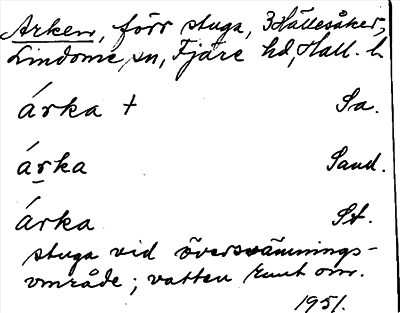 Arken, förr stuga, 3 Hällesåker,
Lindome sn, Fjäre hd, Hall. l.
árka + Sa.
árka Sand.
árka St.
stuga vid översvämnings-
område; vatten runt om.
1951.